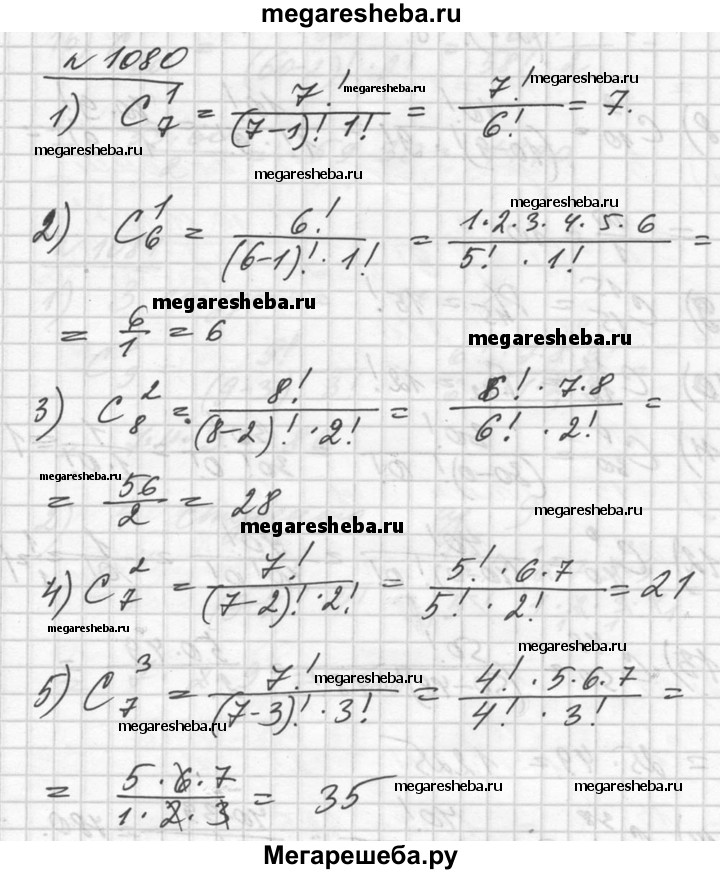 megaresheba.ru
№ 1080
1) C₇¹ = 7!/((7-1)! 1!) = 7!/6! = 7.
megaresheba.ru
megaresheba.ru
megaresheba.ru
megaresheba.ru
megaresheba.ru
2) C₆¹ = 6!/((6-1)! · 1!) = 1·2·3·4·5·6/(5! · 1!) =
= 6/1 = 6
megaresheba.ru
megaresheba.ru
3) C₈² = 8!/((8-2)! · 2!) = 6! · 7·8/(6! · 2!) =
= 56/2 = 28
megaresheba.ru
megaresheba.ru
megaresheba.ru
4) C₇² = 7!/((7-2)! · 2!) = 5! · 6·7/(5! · 2!) = 21
megaresheba.ru
megaresheba.ru
5) C₇³ = 7!/((7-3)! · 3!) = 4! · 5·6·7/(4! · 3!) =
megaresheba.ru
megaresheba.ru
= 5·6·7/(1·2·3) = 35
megaresheba.ru
megaresheba.ru
Мегарешеба.ру